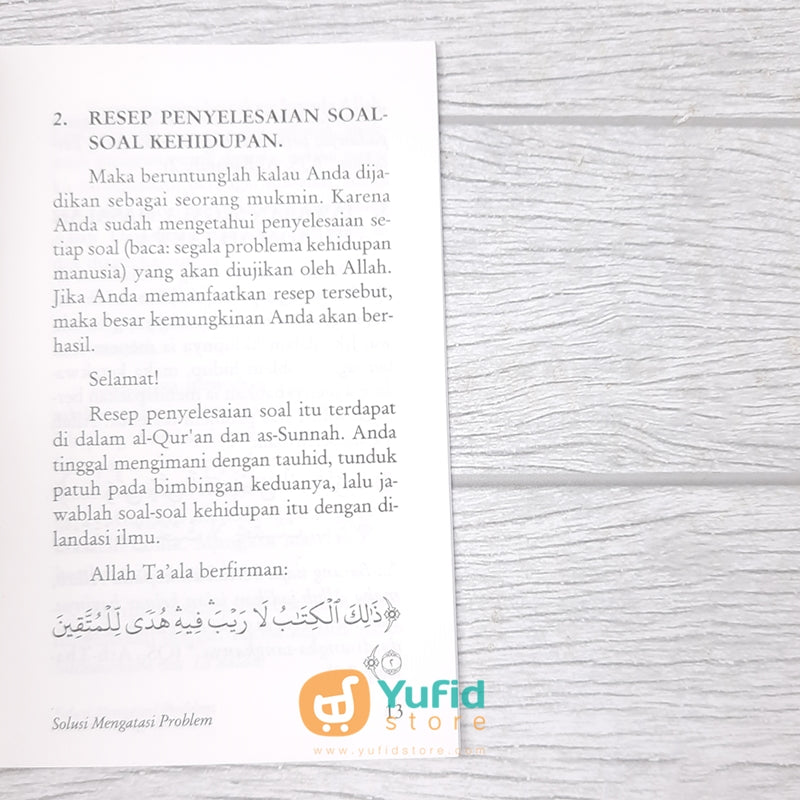 2. RESEP PENYELESAIAN SOAL-
SOAL KEHIDUPAN.
Maka beruntunglah kalau Anda dija-
dikan sebagai seorang mukmin. Karena
Anda sudah mengetahui penyelesaian se-
tiap soal (baca: segala problema kehidupan
manusia) yang akan diujikan oleh Allah.
Jika Anda memanfaatkan resep tersebut,
maka besar kemungkinan Anda akan ber-
hasil.
Selamat!
Resep penyelesaian soal itu terdapat
di dalam al-Qur'an dan as-Sunnah. Anda
tinggal mengimani dengan tauhid, tunduk
patuh pada bimbingan keduanya, lalu ja-
wablah soal-soal kehidupan itu dengan di-
landasi ilmu.
Allah Ta'ala berfirman:
﴿ذَٰلِكَ ٱلْكِتَٰبُ لَا رَيْبَ ۛ فِيهِ ۛ هُدًى لِّلْمُتَّقِينَ
٢﴾
Solusi Mengatasi Problem 13
Yufid
store
www.yufidstore.com